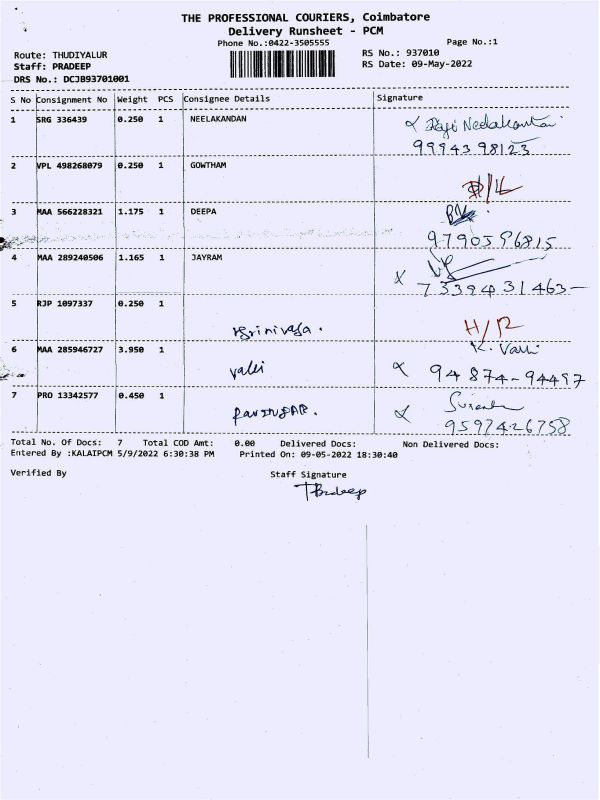 THE PROFESSIONAL COURIERS, Coimbatore
Delivery Runsheet - PCM
Phone No.:0422-3505555 Page No.:1
Route: THUDIYALUR RS No.: 937010
Staff: PRADEEP RS Date: 09-May-2022
DRS No.: DCJB93701001
S No Consignment No Weight PCS Consignee Details Signature
1 SRG 336439 0.250 1 NEELAKANDAN
9994398123
2 VPL 498268079 0.250 1 GOWTHAM
3 MAA 566228321 1.175 1 DEEPA
9790596815
4 MAA 289240506 1.165 1 JAYRAM
7339431463
5 RJP 1097337 0.250 1
H/R
6 MAA 285946727 3.950 1
valli K. Valli
94874-94497
7 PRO 13342577 0.450 1
9597426758
Total No. Of Docs: 7 Total COD Amt: 0.00 Delivered Docs: Non Delivered Docs:
Entered By :KALAIPCM 5/9/2022 6:30:38 PM Printed On: 09-05-2022 18:30:40
Verified By Staff Signature